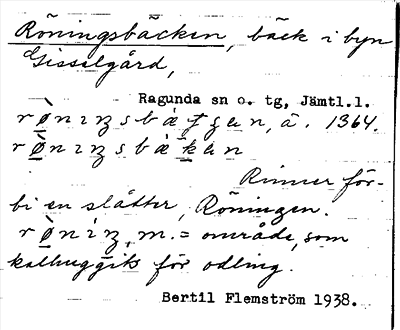 Röningsbäcken, bäck i byn
Gisselgård,
Ragunda sn o. tg, Jämtl.l.
rø̀nıŋsbätʃen, å. 1364.
rø̀nıŋsbäken
Rinner för-
bi en slåtter, Röningen.
rø̀niŋ, m. = område, som
kalhuggits för odling.
Bertil Flemström 1938.